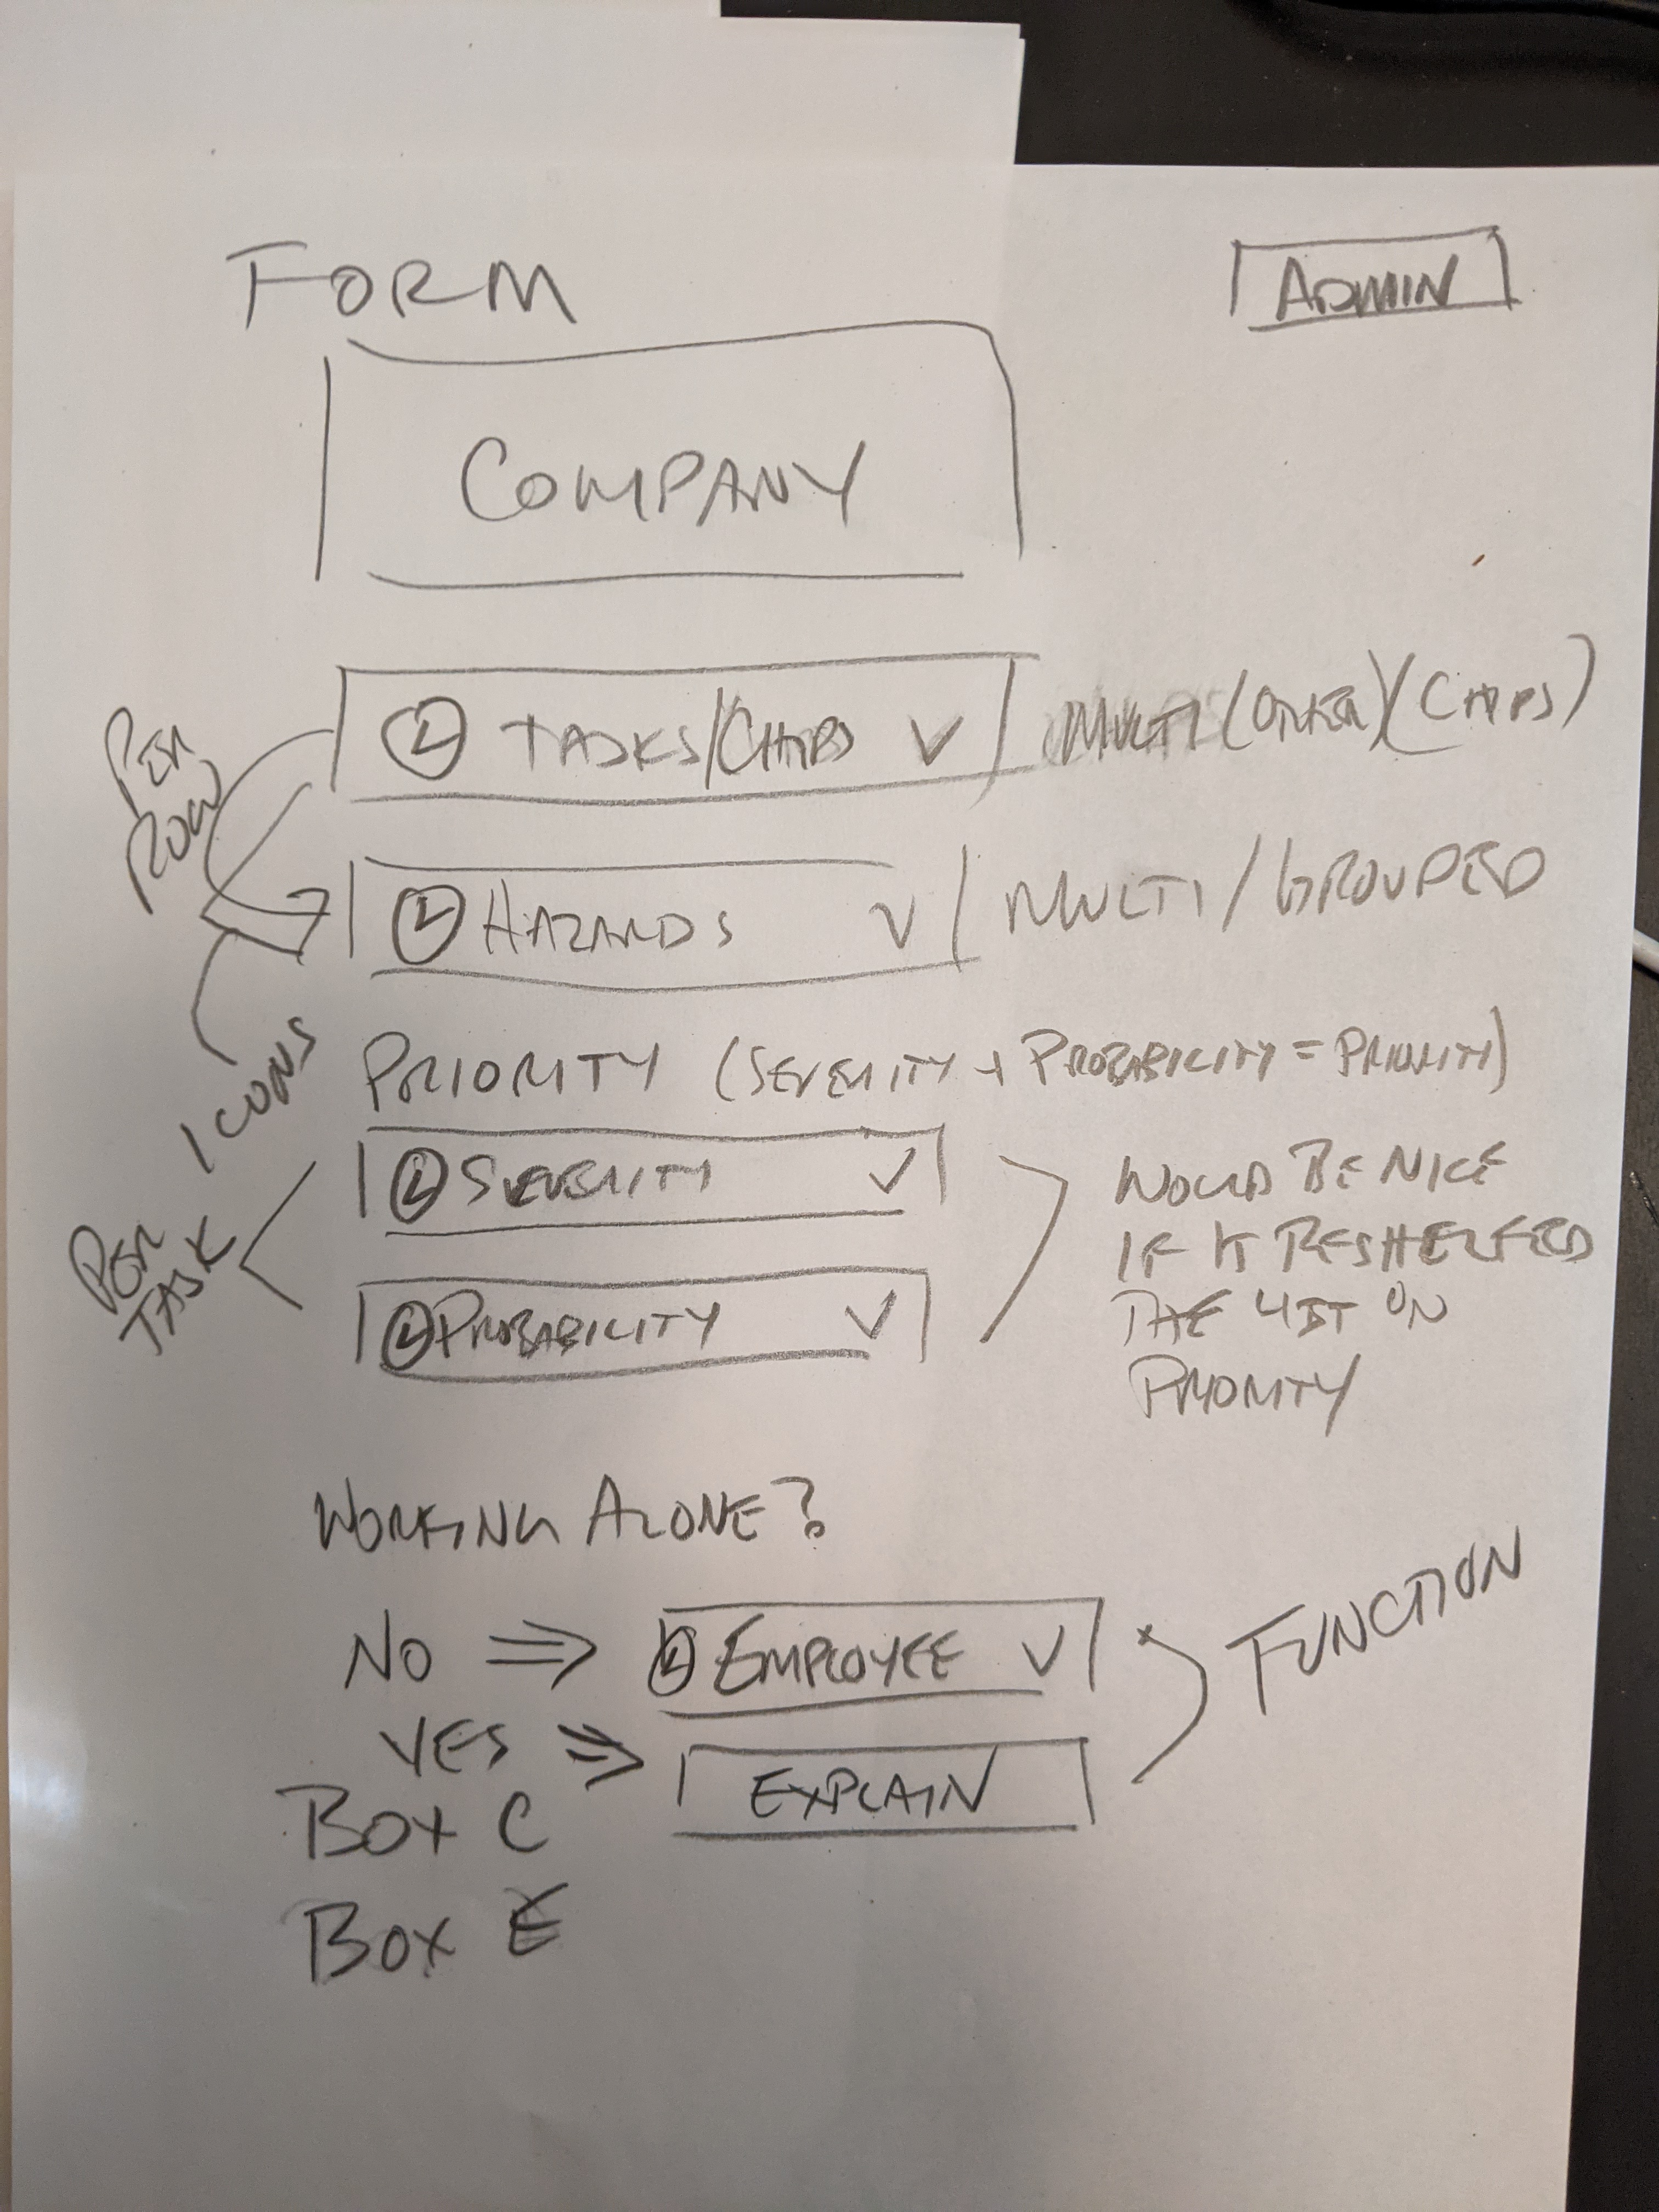 FORM
ADMIN
COMPANY
PER
ROW
L TASKS/CHIPS V MULTI (ORDER) (CHIPS)
L HAZARDS V MULTI/GROUPED
ICONS
PRIORITY (SEVERITY + PROBABILITY = PRIORITY)
PER
TASK
L SEVERITY V
L PROBABILITY V
WOULD BE NICE
IF IT
THE LIST ON
PRIORITY
WORKING ALONE?
NO ⇒ L EMPLOYEE V
YES ⇒ EXPLAIN
FUNCTION
BOX C
BOX E